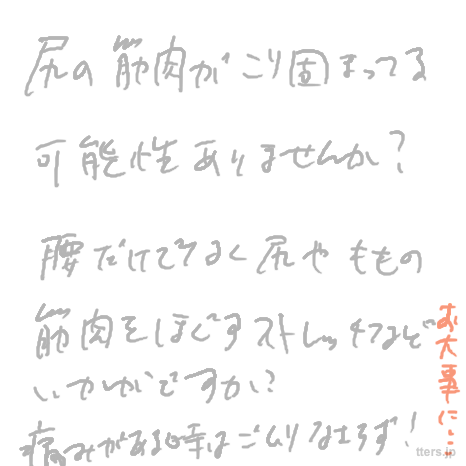 尻の筋肉がこり固まってる
可能性ありませんか?
腰だけでなく尻やももの
筋肉をほぐすストレッチなど
いかがですか?
痛みがある時はごムリなさらず!
お大事に…
tters.jp